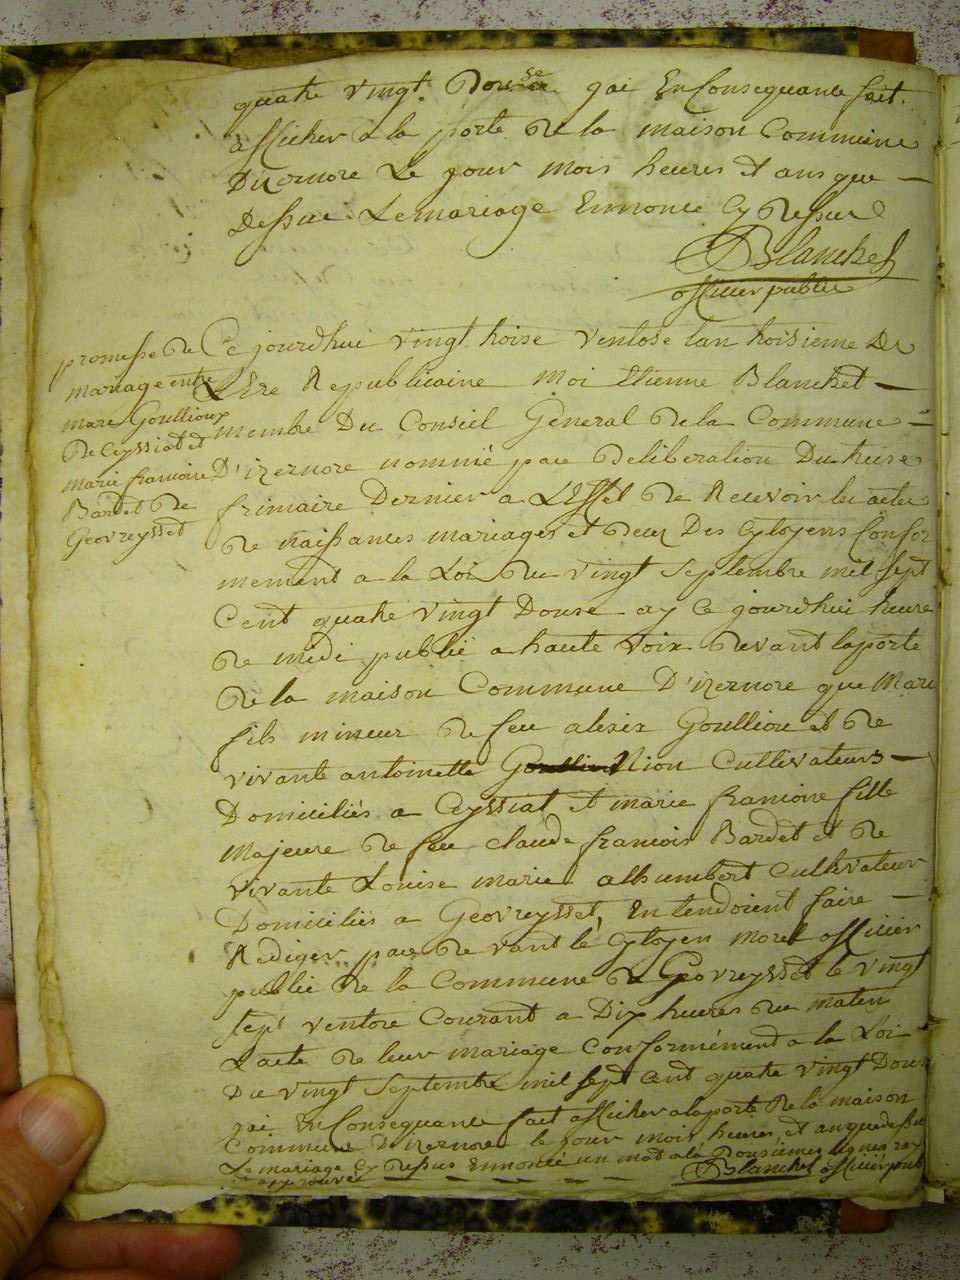 quatre vingt Douse jai En Consequance fait
afficher a la porte de la maison Commune
Dizernore Le jour mois heures et ans que
Dessus Le mariage Ennoncé cy dessus
Blanchet
officier public
promesse de
mariage entre
marc Goullioux
de Ceyssiat et
marie francoise
Bardet de
Geovreysset
Ce jourdhui vingt troise ventose lan troisieme De
LEre Republicaine Moi Etienne Blanchet
membre Du Consiel General de la Commune
D'izernore nommé par deliberation Du treise
frimaire Dernier a LEffet de Recevoir les actes
de naissances mariages et deces Des Cytoyens Confor
mement a la Loi du vingt Septembre mil sept
Cent quatre vingt Douse ay Ce jourdhui heure
de midi publié a haute voix devant la porte
de la maison Commune D'izernore que Marc
fils mineur de feu alexix Goulliou et de
vivante antoinette Nion Cultivateurs
Domiciliés a Ceyssiat et marie francoise fille
Majeure de feu claude francois Bardet et de
vivante Louise marie alhumbert Cultivateur
Domiciliés a Geovreysset, Entendoient faire
Rediger par devant le Cytoyen morel officier
public de la Commune de Geovreysset le vingt
sept ventose Courant a Dix heures du matin
Lacte de leur mariage Conformément a la Loi
Du vingt Septembre mil sept Cent quatre vingt Douse
jai En Consequance fait afficher a la porte de la maison
Commune Dizernore le jour mois, heures, et an que dessus
Le mariage Cy dessus Ennoncé un mot a la Dousieme ligne rayé
approuvé Blanchet officier public